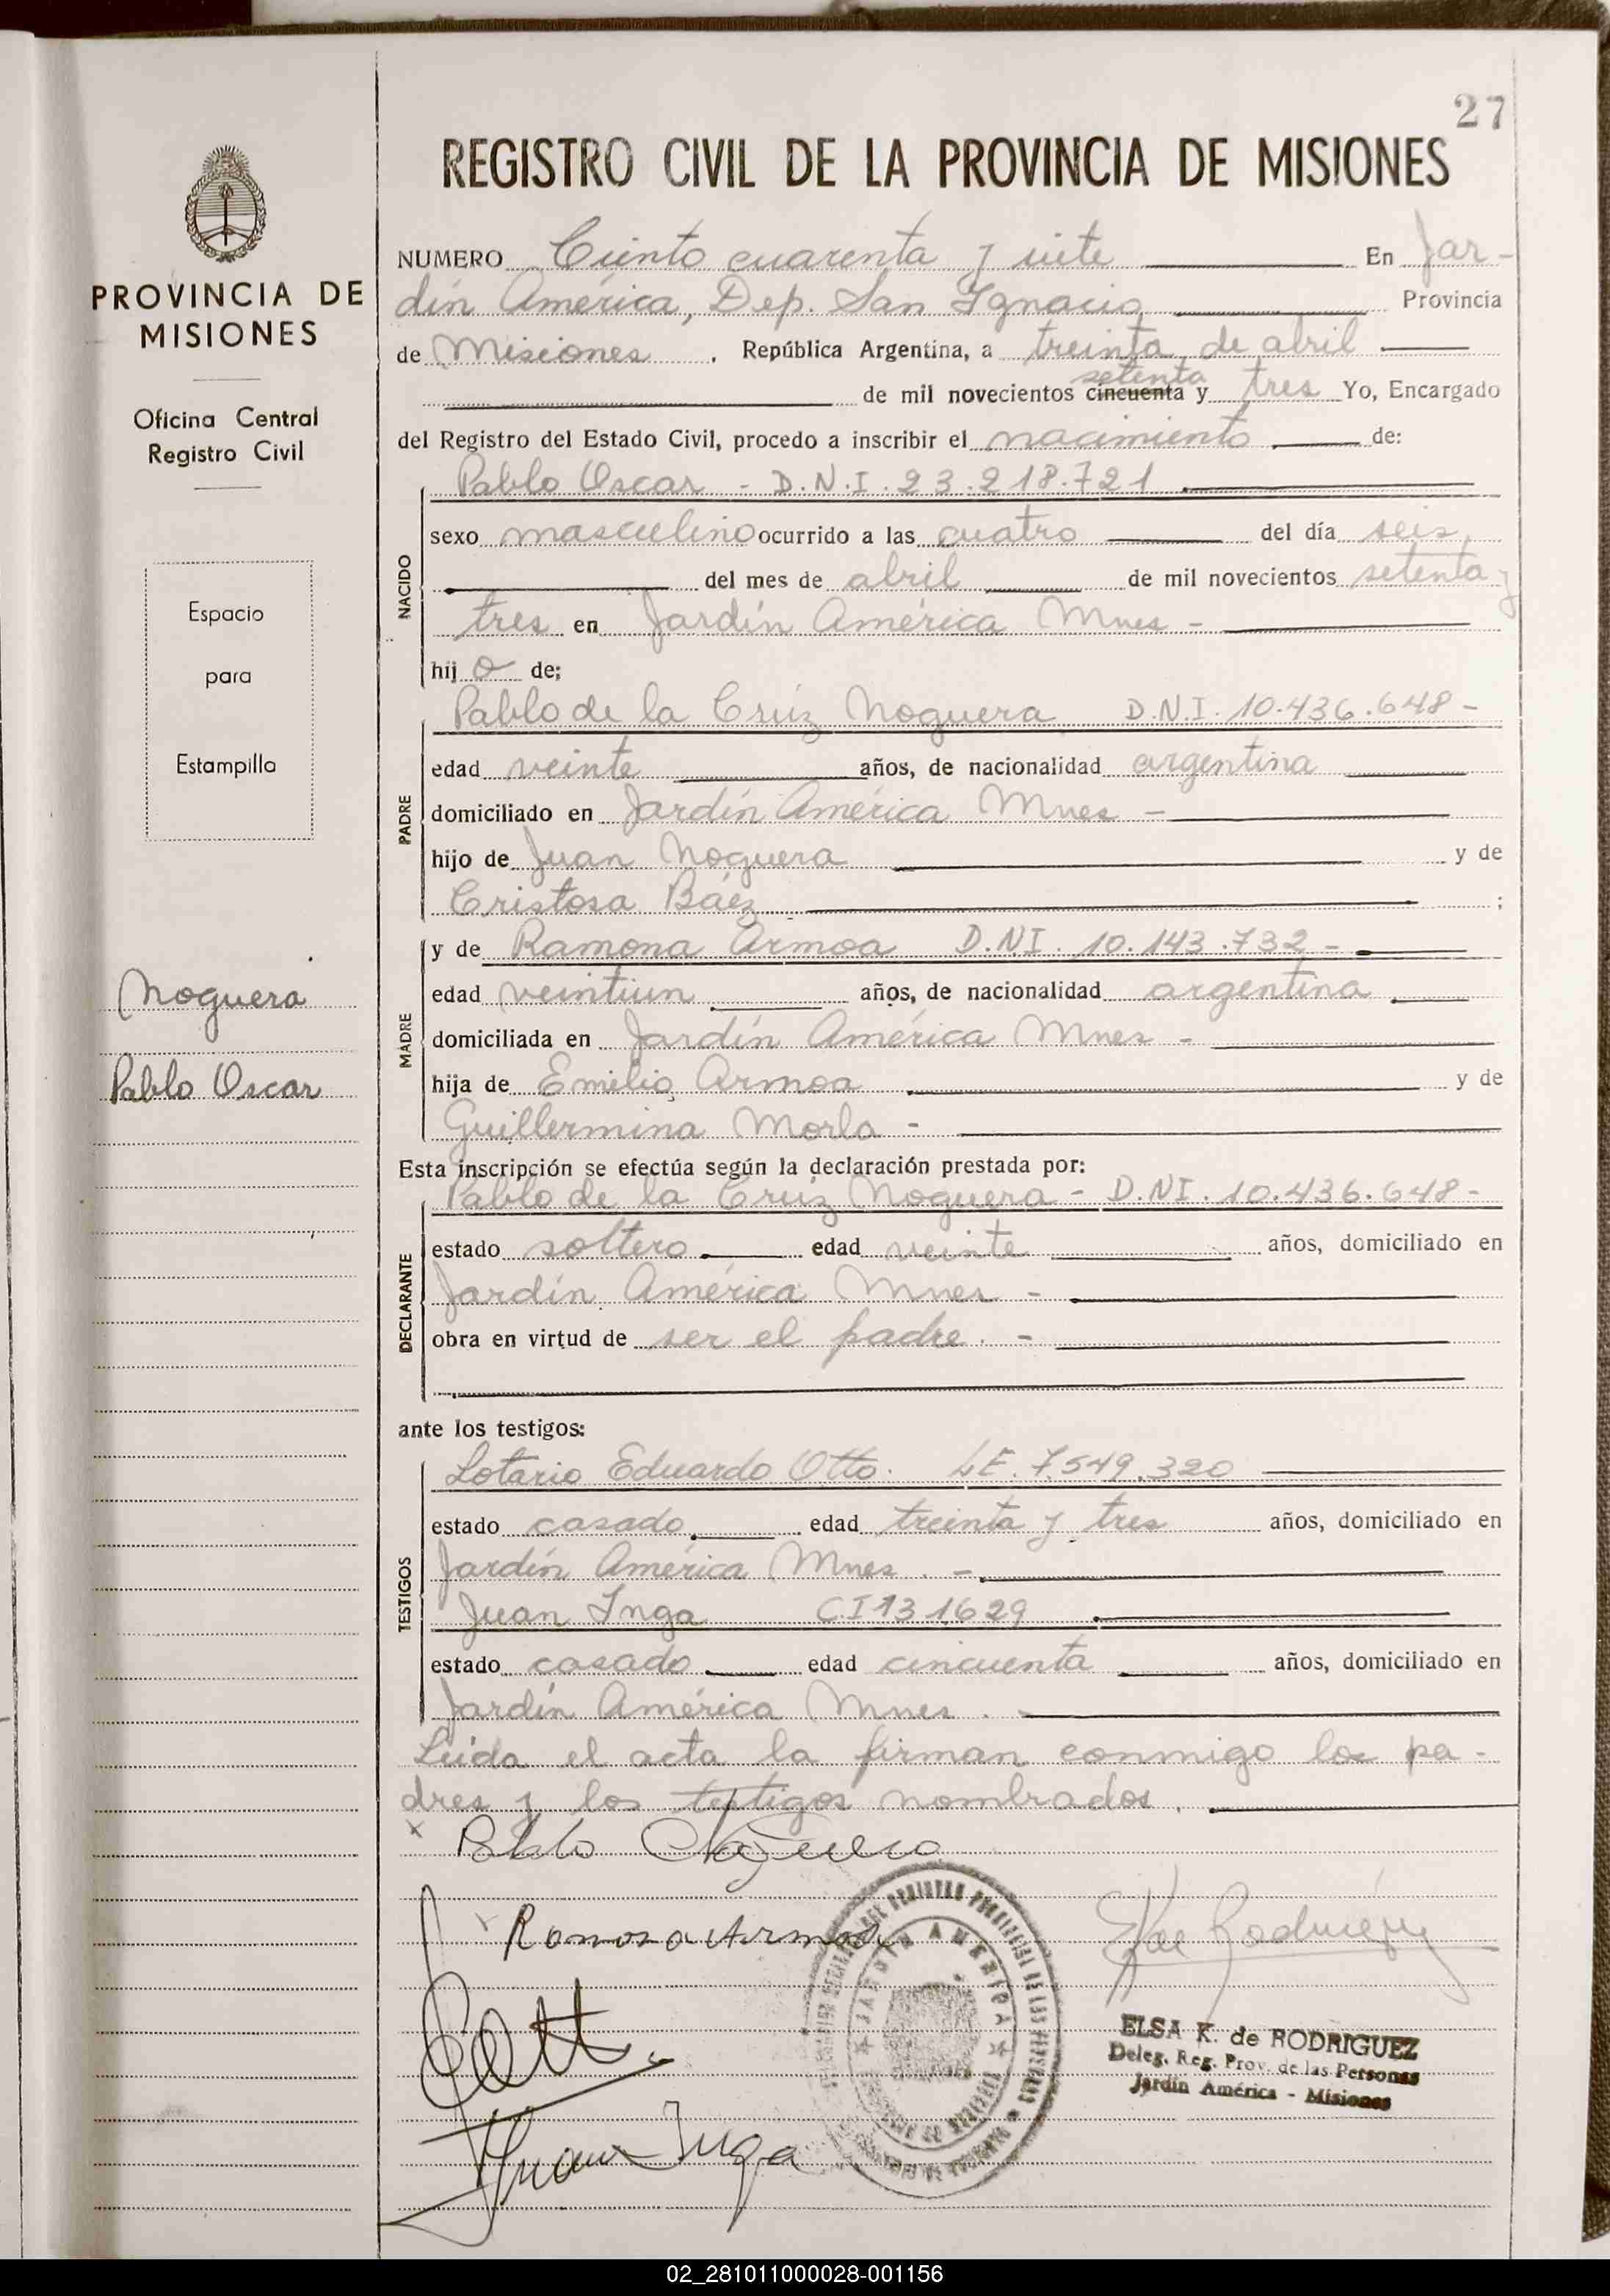 27
REGISTRO CIVIL DE LA PROVINCIA DE MISIONES
PROVINCIA DE
MISIONES
Oficina Central
Registro Civil
Espacio
para
Estampilla
Noguera
Pablo Oscar
NUMERO Ciento cuarenta y siete En Jar-
dín América, Dep. San Ignacio, Provincia
de Misiones, República Argentina, a treinta de abril
setenta
de mil novecientos cincuenta y tres Yo, Encargado
del Registro del Estado Civil, procedo a inscribir el nacimiento de:
NACIDO
Pablo Oscar - D.N.I. 23.218.721
sexo masculino ocurrido a las cuatro del día seis
del mes de abril de mil novecientos setenta y
tres en Jardín América Mnes -
hijo de;
PADRE
Pablo de la Crúz Noguera D.N.I. 10.436.648 -
edad veinte años, de nacionalidad argentina
domiciliado en Jardín América Mnes -
hijo de Juan Noguera y de
Cristosa Báez ;
MADRE
y de Ramona Armoa D.N.I. 10.143.732 -
edad veintiun años, de nacionalidad argentina
domiciliada en Jardín América Mnes -
hija de Emilio Armoa y de
Guillermina Morla -
Esta inscripción se efectúa según la declaración prestada por:
DECLARANTE
Pablo de la Crúz Noguera - D.N.I. 10.436.648 -
estado soltero edad veinte años, domiciliado en
Jardín América Mnes -
obra en virtud de ser el padre. -
ante los testigos:
TESTIGOS
Lotario Eduardo Otto. L.E. 7.549.320
estado casado edad treinta y tres años, domiciliado en
Jardín América Mnes. -
Juan Inga C.I 131629
estado casado edad cincuenta años, domiciliado en
Jardín América Mnes.
Leída el acta la firman conmigo los pa-
dres y los testigos nombrados.
x Pablo Noguera
x Ramona Armoa
Juan Inga
JARDIN AMERICA
ELSA K. de RODRIGUEZ
Deleg. Reg. Prov. de las Personas
Jardín América - Misiones
02_281011000028-001156